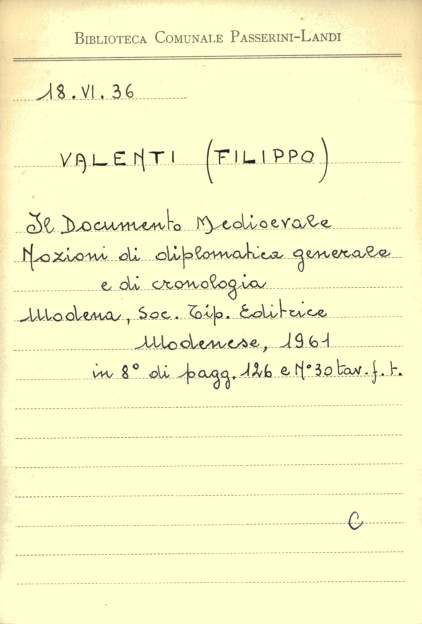 BIBLIOTECA COMUNALE PASSERINI-LANDI
18.VI.36
VALENTI (FILIPPO)
Il Documento Medioevale
Nozioni di diplomatica generale
e di cronologia
Modena, Soc. Tip. Editrice
Modenese, 1961
in 8° di pagg. 126 e N° 30 tav. f. t.
C